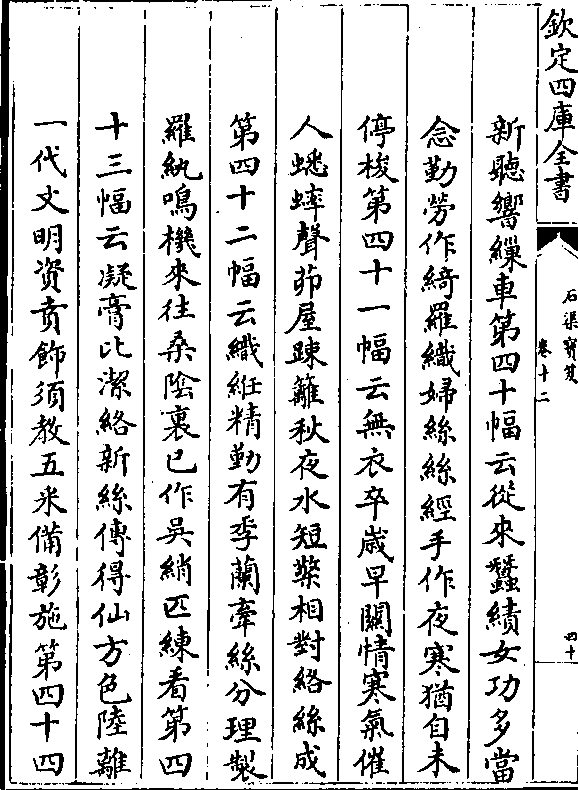 欽定四庫全書
石渠寳笈
卷十二
四十
新聽響繅車第四十幅云從來蠶績女功多當
念勤勞作綺羅織婦絲絲經手作夜寒猶自未
停梭第四十一幅云無衣卒嵗早關情寒氣催
人蟋蟀聲茆屋踈籬秋夜水短檠相對絡絲成
第四十二幅云織紝精勤有季蘭牽絲分理製
羅紈鳴機來往桑陰裏已作吳綃匹練看第四
十三幅云凝膏比潔絡新絲傳得仙方色陸離
一代文明資賁飾須教五采備彰施第四十四